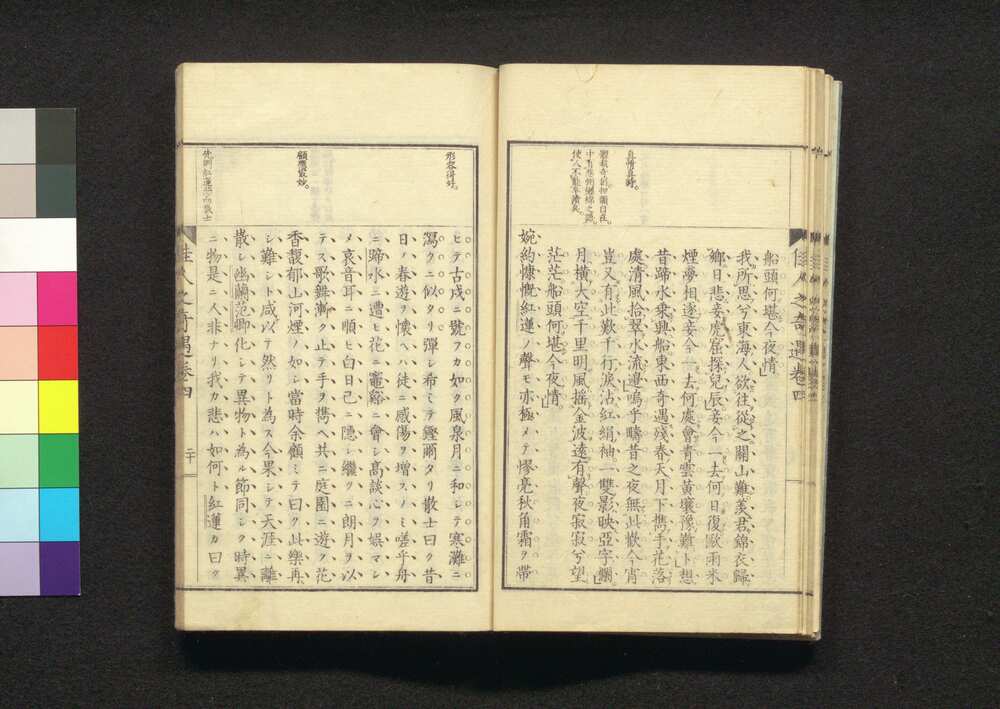 真情真詩。
船頭何堪今夜情」
我所思兮東海人欲往從之關山難羨君錦衣歸
鄉日悲妾虎窟探兒辰妾今一去何日復歐雨米
煙夢相逐妾今一去何處會青雲黃壤豫難卜想
昔蹄水乘興船東西奇遇殘春天月下携手花落
處清風拾翠水流邊」嗚乎疇昔之夜無此歡今宵
豈又有此歎千行淚沾紅絹袖一雙影映亞字欄」
月橫大空千里明風搖金波遠有聲夜寂寂兮望
茫茫船頭何堪今夜情」
婉約慷慨紅蓮ノ聲モ亦極メテ慘亮秋角霜ヲ帶
佳人之奇遇卷四
形容得好。
顧應最妙。
ヒテ古戍ニ號フカ如ク風泉月ニ和シテ寒灘ニ
瀉クニ似タリ彈シ希ミテ鏗爾タリ散士曰ク昔
日ノ春遊ヲ懷ヘハ徒ニ感傷ヲ增スノミ嗟乎舟
ニ蹄水ニ遭ヒ花ニ竈谿ニ會シ高談心ヲ娯マシ
メ哀音耳ニ順ヒ白日已ニ隱レ繼クニ朗月ヲ以
テス歌舞漸ク止テ手ヲ携ヘ共ニ庭園ニ遊フ花
香馥郁山河煙ノ如シ當時余顧ミテ曰ク此樂再
シ難シト咸以テ然リト為ス今果シテ天涯ニ離
散シ幽蘭范卿化シテ異物ト為ル節同シク時異
ニ物是ニ人非ナリ我カ悲ハ如何ト紅蓮カ曰ク
佳人之奇遇卷四
二十